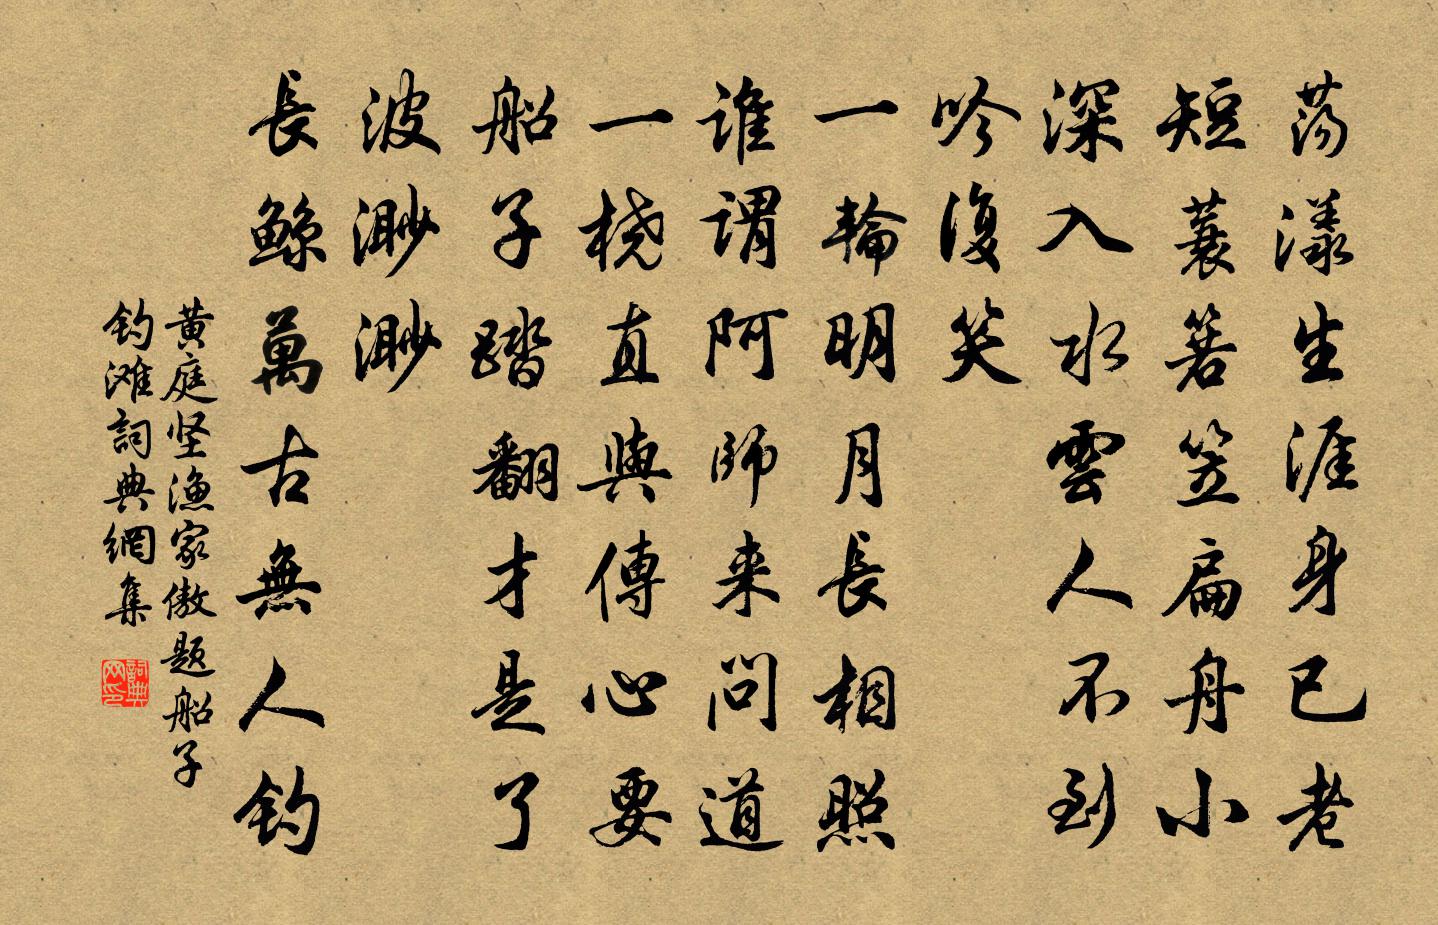 荡漾生涯身已老
短蓑箬笠扁舟小
深入水雲人不到
吟復笑
一輪明月長相照
谁謂阿師来問道
一桡直與傳心要
船子踏翻才是了
波渺渺
長鲸萬古無人钓
黄庭坚渔家傲题船子
钓滩詞典網集
詞典网印